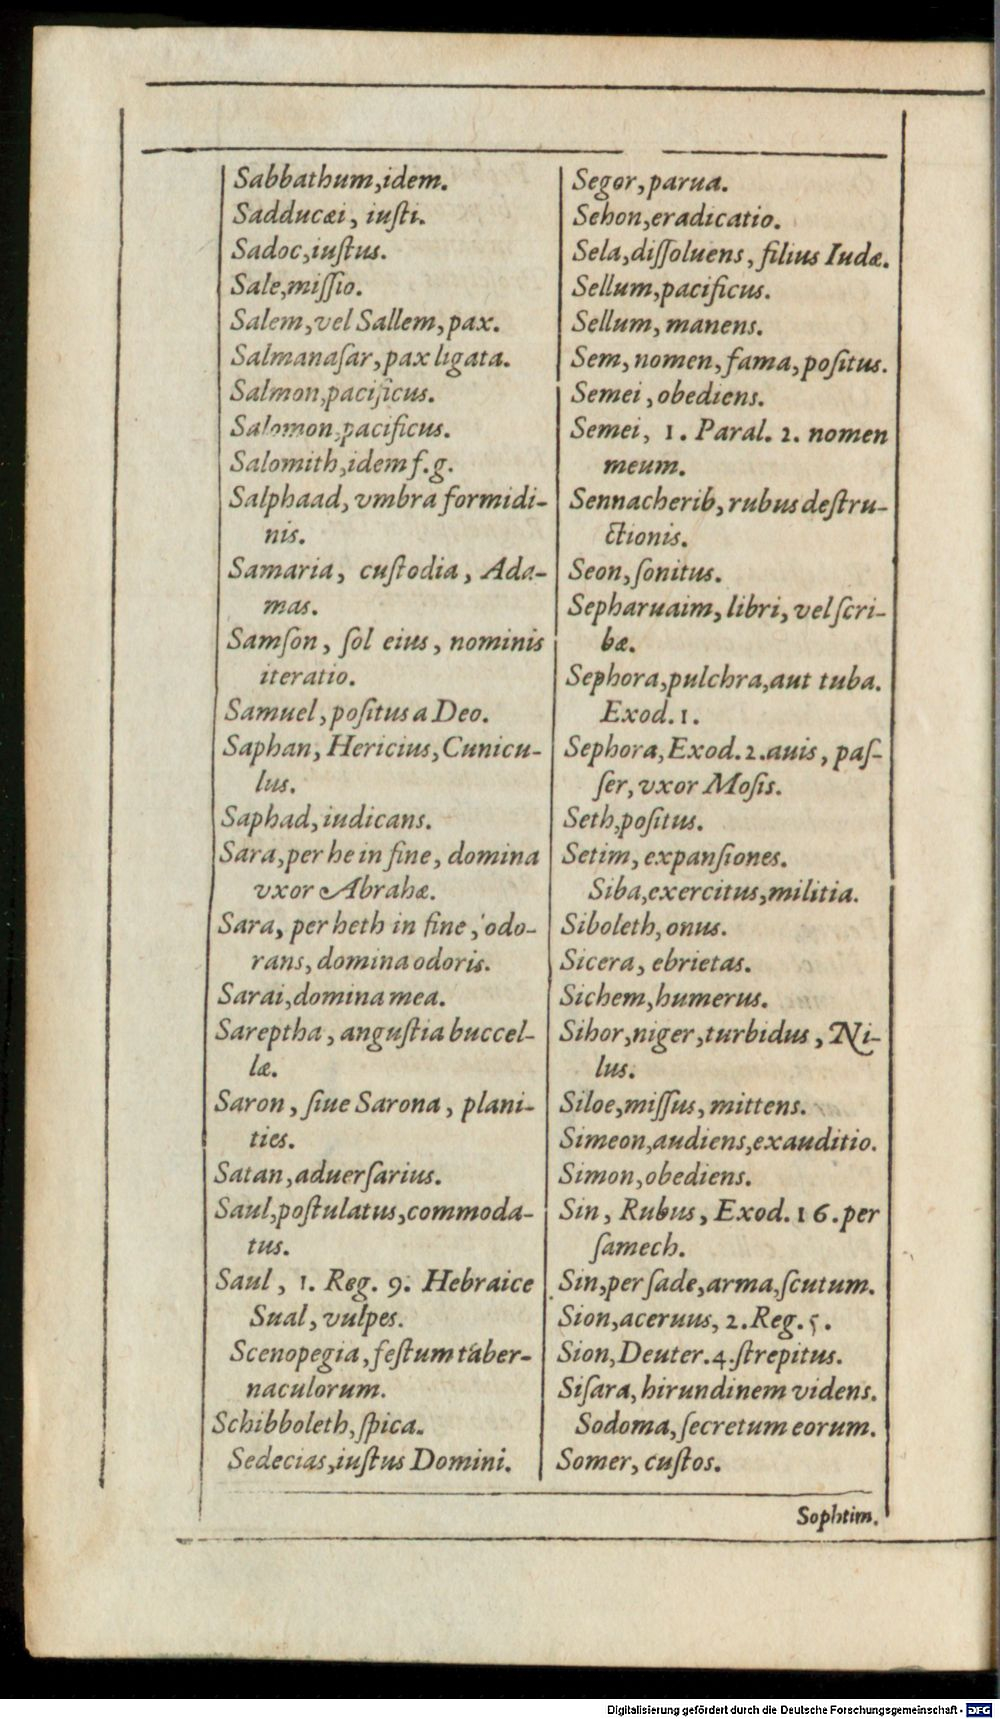 Sabbathum, idem.
Sadducæi, iuſti.
Sadoc, iuſtus.
Sale, miſſio.
Salem, vel Sallem, pax.
Salmanaſar, pax ligata.
Salmon, pacificus.
Salomon, pacificus.
Salomith, idem f. g.
Salphaad, vmbra formidi-
nis.
Samaria, cuſtodia, Ada-
mas.
Samſon, ſol eius, nominis
iteratio.
Samuel, poſitus a Deo.
Saphan, Hericius, Cunicu-
lus.
Saphad, iudicans.
Sara, per he in fine, domina
vxor Abrahæ.
Sara, per heth in fine, odo-
rans, domina odoris.
Sarai, domina mea.
Sareptha, anguſtia buccel-
læ.
Saron, ſiue Sarona, plani-
ties.
Satan, aduerſarius.
Saul, poſtulatus, commoda-
tus.
Saul, 1. Reg. 9. Hebraice
Sual, vulpes.
Scenopegia, feſtum taber-
naculorum.
Schibboleth, ſpica.
Sedecias, iuſtus Domini.
Segor, parua.
Sehon, eradicatio.
Sela, diſſoluens, filius Iudæ.
Sellum, pacificus.
Sellum, manens.
Sem, nomen, fama, poſitus.
Semei, obediens.
Semei, 1. Paral. 2. nomen
meum.
Sennacherib, rubus deſtru-
ctionis.
Seon, ſonitus.
Sepharuaim, libri, vel ſcri-
bæ.
Sephora, pulchra, aut tuba.
Exod. 1.
Sephora, Exod. 2. auis, paſ-
ſer, vxor Moſis.
Seth, poſitus.
Setim, expanſiones.
Siba, exercitus, militia.
Siboleth, onus.
Sicera, ebrietas.
Sichem, humerus.
Sihor, niger, turbidus, Ni-
lus.
Siloe, miſſus, mittens.
Simeon, audiens, exauditio.
Simon, obediens.
Sin, Rubus, Exod. 16. per
ſamech.
Sin, per ſade, arma, ſcutum.
Sion, aceruus, 2. Reg. 5.
Sion, Deuter. 4. ſtrepitus.
Siſara, hirundinem videns.
Sodoma, ſecretum eorum.
Somer, cuſtos.
Sophtim.
Digitalisierung gefördert durch die Deutsche Forschungsgemeinschaft - DFG